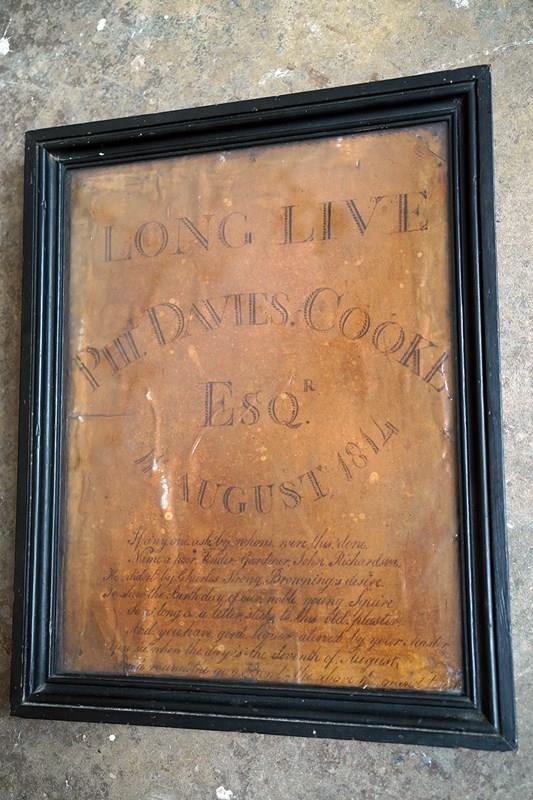 LONG LIVE
PHI. DAVIES. COOKE
ESQR.
AUGUST 1814
If any one ask by whom were this done,
poor Gardiner, John Richardson,
He did it by Charles Strong Browning's desire
To show the Birthday of our noble young Squire
So long as a letter stick to this old plaister
And you have good liquor allowed by your Master
You see when the day is the eleventh of August,